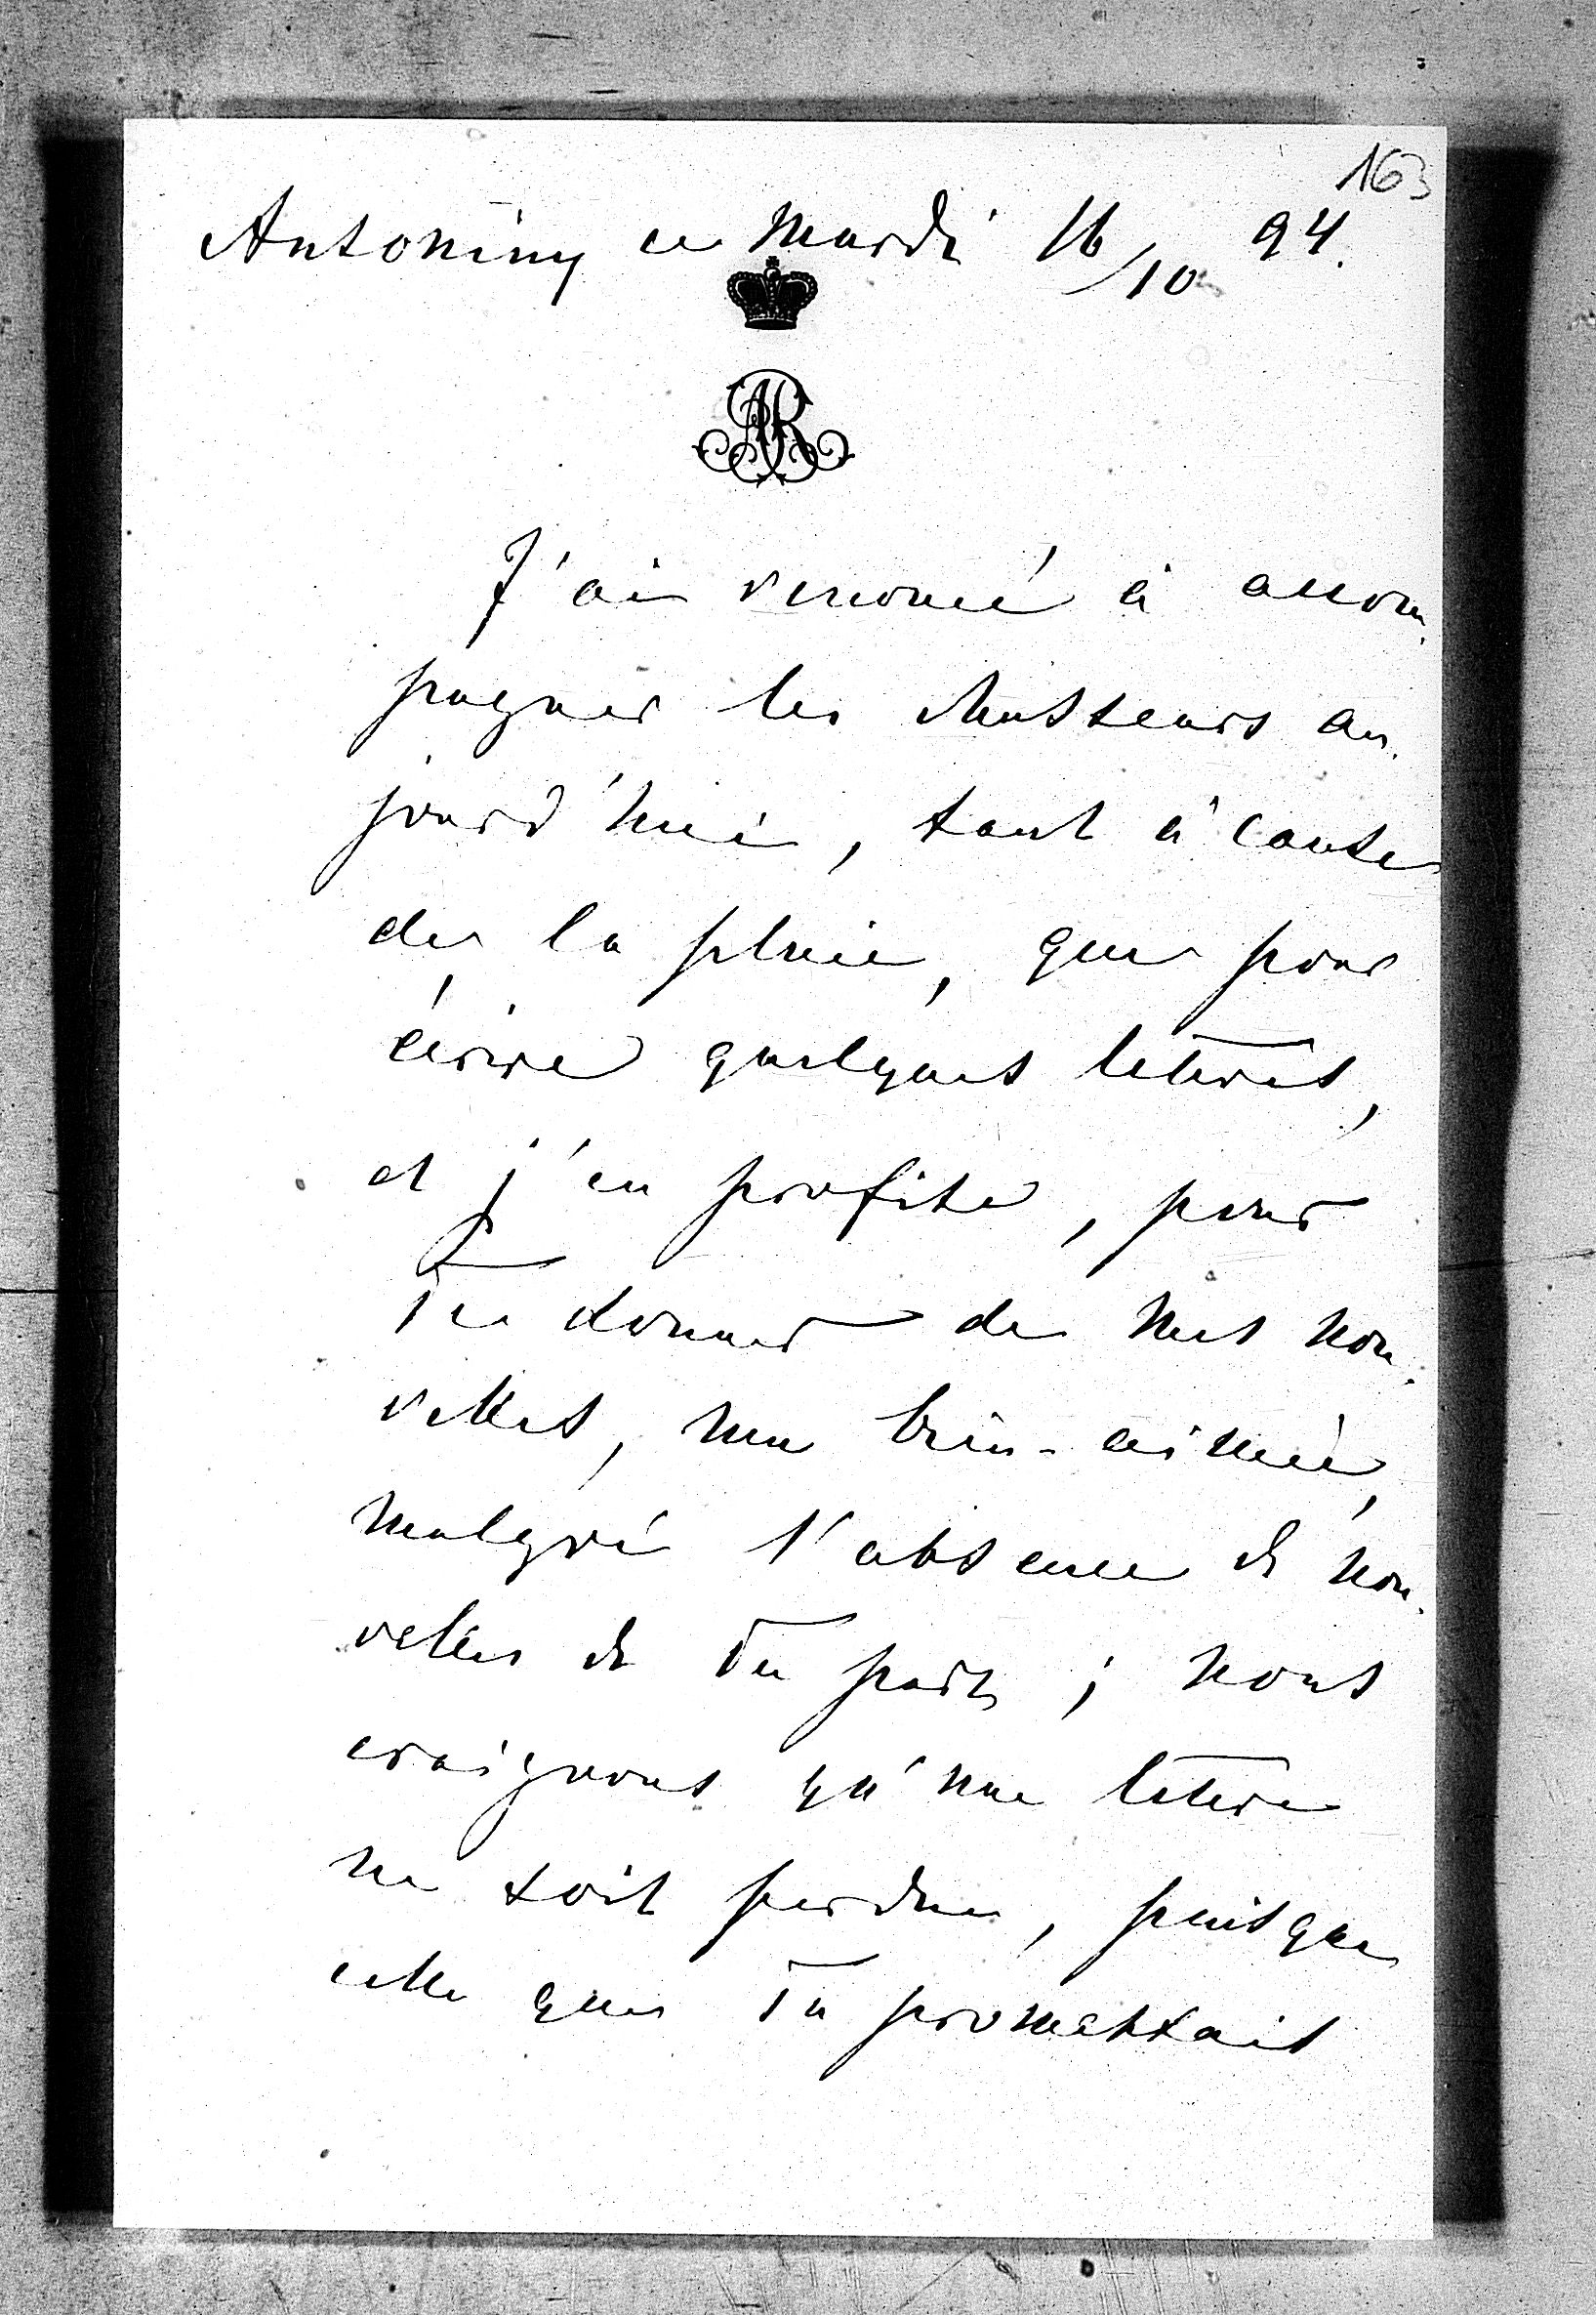 163
Antoniny ce Mardi 16/10 94.
AR
J'ai renoncé à accom-
pagner les chasseurs au-
jourd'hui, tant à cause
de la pluie, que pour
écrire quelques lettres,
et j'en profite, pour
Te donner de mes nou-
velles, ma bien-aimée,
malgré l'absence de nou-
velles de Ta part; nous
craignons qu'une lettre
ne soit perdue, puisque
celle que Tu promettais